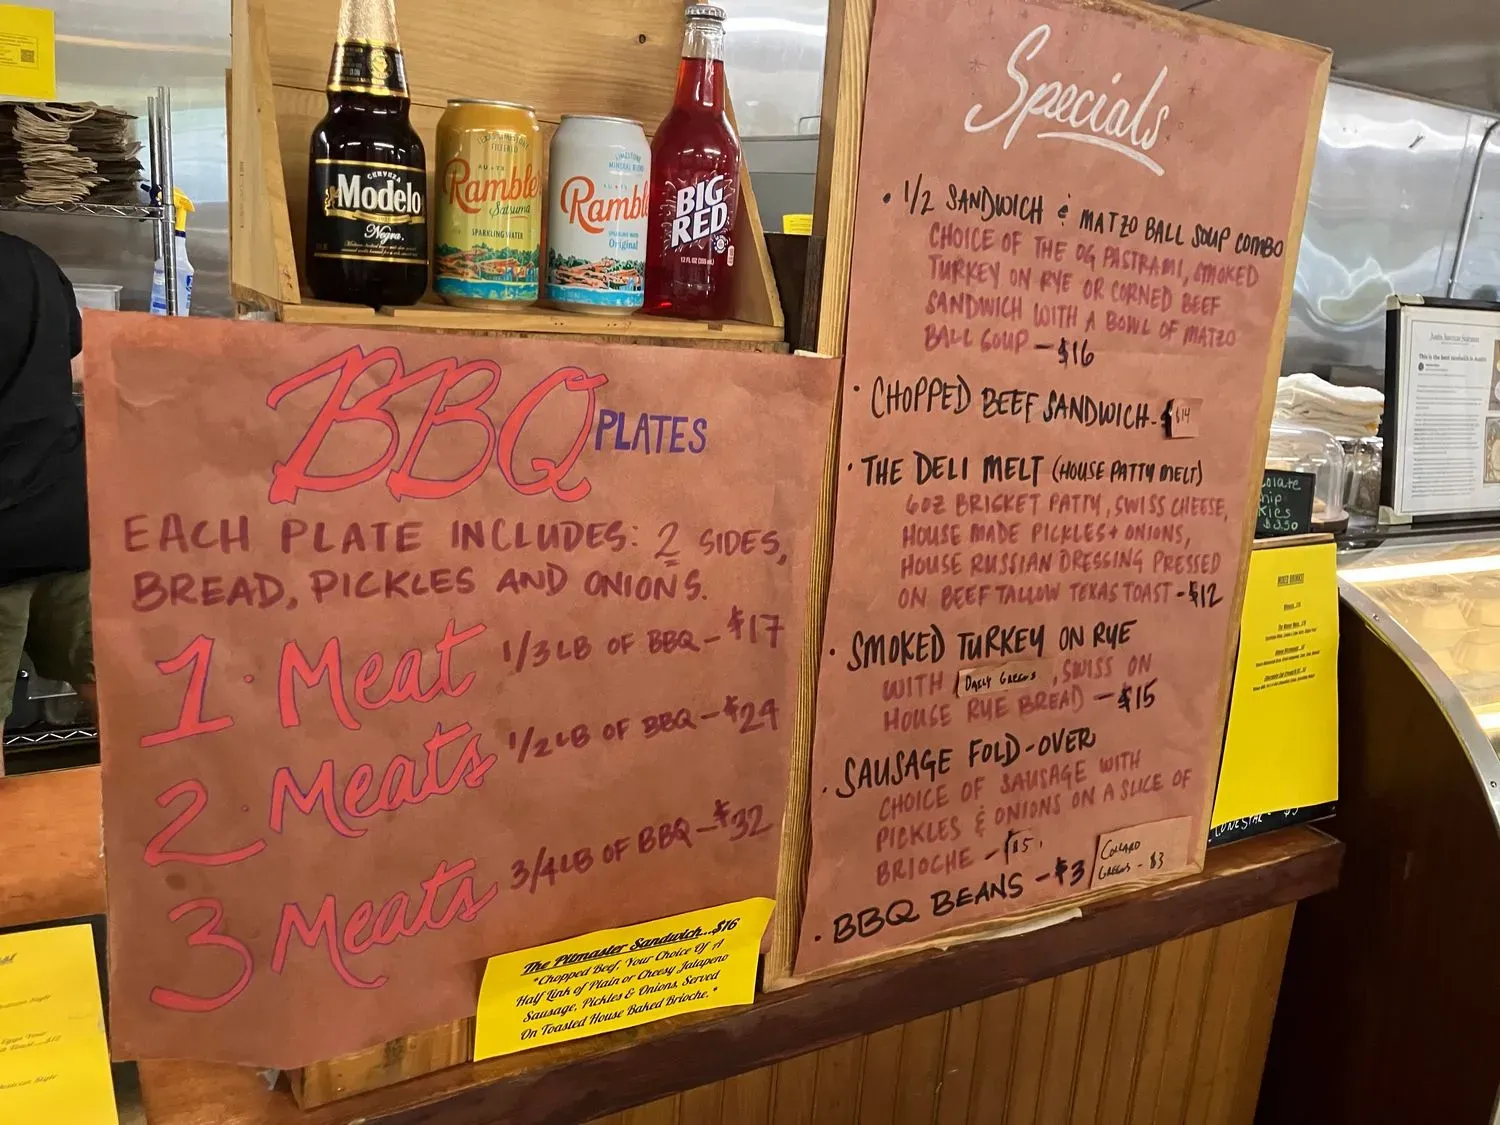 CERVEZA
Modelo
Negra
Ramble
Satsuma
SPARKLING WATER
LIMESTONE
MINERAL BLEND
Original
BIG
RED
12 FL OZ (355 mL)
BBQ PLATES
EACH PLATE INCLUDES: 2 SIDES,
BREAD, PICKLES AND ONIONS.
1. Meat 1/3 LB OF BBQ - $17
2. Meats 1/2 LB OF BBQ - $24
3 Meats 3/4 LB OF BBQ - $32
The Pitmaster Sandwich...$16
"Chopped Beef, Your Choice Of A
Half Link of Plain or Cheesy Jalapeno
Sausage, Pickles & Onions, Served
On Toasted House Baked Brioche."
Specials
• 1/2 SANDWICH & MATZO BALL SOUP COMBO
CHOICE OF THE OG PASTRAMI, SMOKED
TURKEY ON RYE OR CORNED BEEF
SANDWICH WITH A BOWL OF MATZO
BALL SOUP - $16
• CHOPPED BEEF SANDWICH - $14
• THE DELI MELT (HOUSE PATTY MELT)
6OZ BRICKET PATTY, SWISS CHEESE,
HOUSE MADE PICKLES + ONIONS,
HOUSE RUSSIAN DRESSING PRESSED
ON BEEF TALLOW TEXAS TOAST - $12
• SMOKED TURKEY ON RYE
WITH DAILY GREENS, SWISS ON
HOUSE RYE BREAD - $15
• SAUSAGE FOLD-OVER
CHOICE OF SAUSAGE WITH
PICKLES & ONIONS ON A SLICE OF
BRIOCHE - $5.
• BBQ BEANS - $3
COLLARD
GREENS - $3
This is the best sandwich in Austin